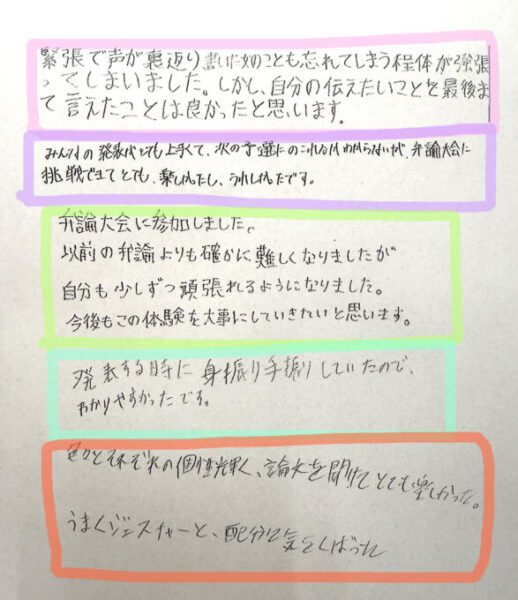 緊張で声が裏返り書いた文のことも忘れてしまう程体が強張
ってしまいました。しかし、自分の伝えたいことを最後ま
で言えたことは良かったと思います。
みんなの発表がとても上手くて、次の予選にのこれるかわからないが、弁論大会に
挑戦できてとても、楽しかったし、うれしかったです。
弁論大会に参加しました。
以前の弁論よりも確かに難しくなりましたが
自分も少しずつ頑張れるようになりました。
今後もこの体験を大事にしていきたいと思います。
発表する時に身振り手振りしていたので、
わかりやすかったです。
色々とそれぞれの個性 、論文を聞けてとても楽しかった。
うまくジェスチャーと、 気をくばった